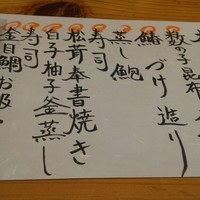 数の子昆布
鰆づけ造り
蒸し鮑
寿司
松茸奉書焼き
白子柚子釜蒸し
寿司
金目鯛お吸